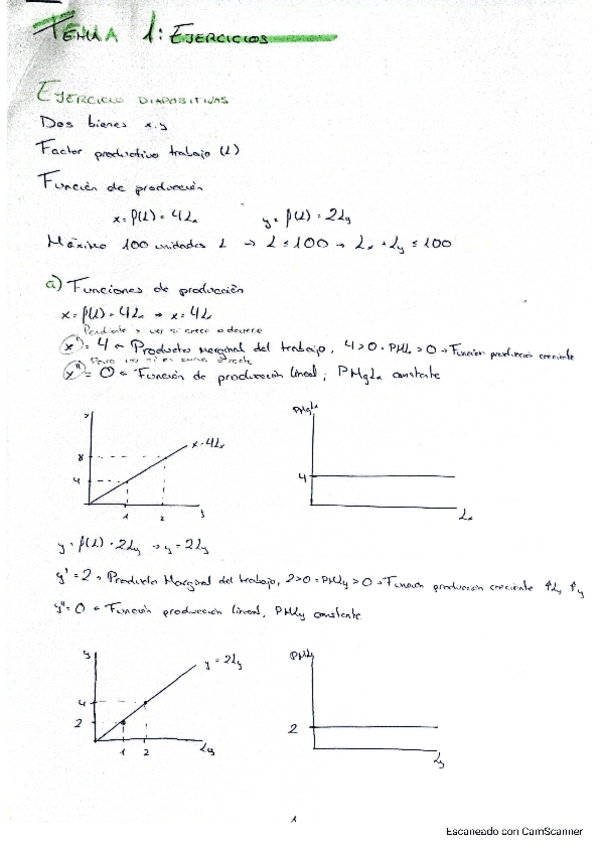 TEMA 1: EJERCICIOS
EJERCICIO DIAPOSITIVAS
Dos bienes x, y
Factor productivo trabajo (L)
Función de producción
x = f(L) = 4Lx y = f(L) = 2Ly
Máximo 100 unidades L → L ≤ 100 → Lx + Ly ≤ 100
a) Funciones de producción
x = f(L) = 4Lx → x = 4L
Pendiente → ver si crece o decrece
x' = 4 → Producto marginal del trabajo, 4>0 = PMLx > 0 → Función producción creciente
x'' = 0 → Función de producción lineal, PMgLx constante
x = 4Lx
8
4
1 2
PMgLx
4
Lx
y = f(L) = 2Ly → y = 2Ly
y' = 2 → Producto Marginal del trabajo, 2>0 = PMLy > 0 → Función producción creciente ↑Ly ↑y
y'' = 0 → Función producción lineal, PMLy constante
y
y = 2Ly
4
2
1 2 Ly
PMLy
2
Ly
1
Escaneado con CamScanner